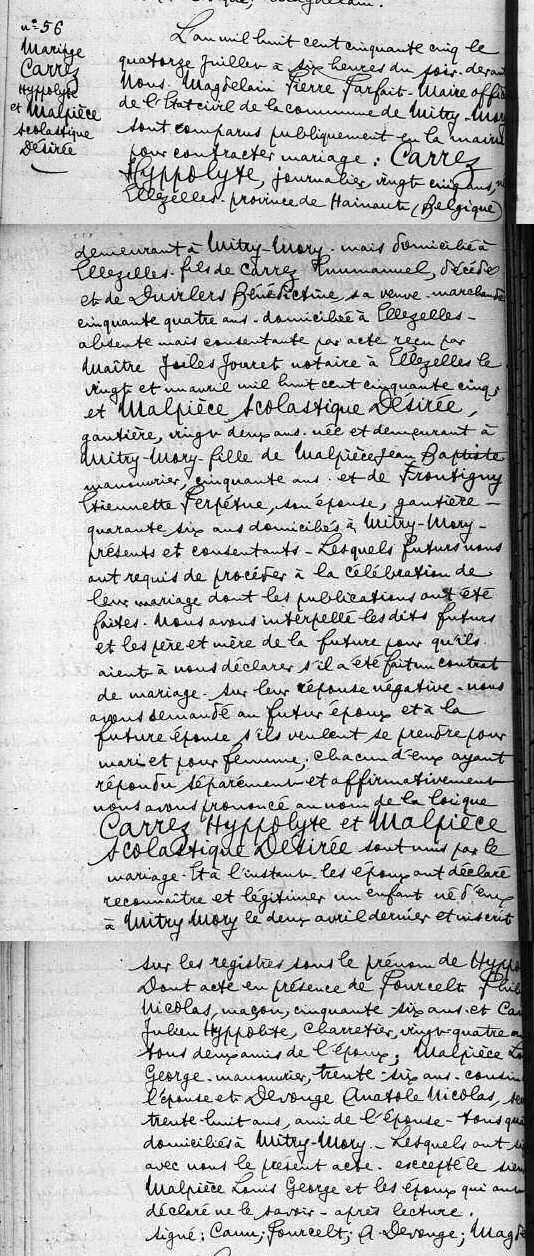 n° 56
Mariage
Carrez
Hyppolyte
et Malpièce
Scolastique
Désirée
L'an mil huit cent cinquante cinq le
quatorze Juillet à six heures du soir. devant
Nous. Magdelain Pierre Parfait. Maire offi
de l'Etat civil de la commune de Mitry-Mory
sont comparus publiquement en la mairie
pour contracter mariage : Carrez
Hyppolyte, journalier, vingt cinq ans, n
Ellezelles. province de Hainaut (Belgique)
demeurant à Mitry-Mory. mais domicilié à
Ellezelles. fils de Carrez Emmanuel, décédé
et de Bénédictine, sa veuve. marchande
cinquante quatre ans. domiciliée à Ellezelles -
absente mais consentante par acte reçu par
Maître Jules Jouret notaire à Ellezelles le
vingt et un avril mil huit cent cinquante cinq,
et Malpièce Scolastique Désirée,
gantière, vingt deux ans. née et demeurant à
Mitry-Mory. fille de Malpièce Jean Baptiste
manouvrier, cinquante ans. et de Frontigny
Etiennette Perpétue, son épouse, gantière -
quarante six ans domiciliés à Mitry-Mory -
présents et consentants - Lesquels futurs nous
ont requis de procéder à la célébration de
leur mariage dont les publications ont été
faites. Nous avons interpellé les dits futurs
et les père et mère de la future pour qu'ils
aient à nous déclarer s'il a été fait un contrat
de mariage. sur leur réponse négative. nous
avons demandé au futur époux et à la
future épouse s'ils veulent se prendre pour
mari et pour femme ; chacun d'eux ayant
répondu séparément et affirmativement
nous avons prononcé au nom de la loi que
Carrez Hyppolyte et Malpièce
Scolastique Désirée sont unis par le
mariage. Et à l'instant. les époux ont déclaré
reconnaître et légitimer un enfant né d'eux
à Mitry Mory le deux avril dernier et inscrit
sur les registres sous le prénom de Hyppo
Dont acte en présence de Fourcelt Phil
Nicolas, maçon, cinquante six ans. et Cau
Julien Hyppolite, charretier, vingt-quatre a
tous deux amis de l'époux ; Malpièce Lo
George. manouvrier, trente-six ans. cousin
l'épouse et Devouge Anatole Nicolas,
trente huit ans, ami de l'épouse - tous qua
domiciliés à Mitry-Mory. - Lesquels ont si
avec nous le présent acte. excepté le sieur
Malpièce Louis George et les époux qui
déclaré ne le savoir - après lecture.
Signé : Fourcelt ; A. Devouge ; Magde